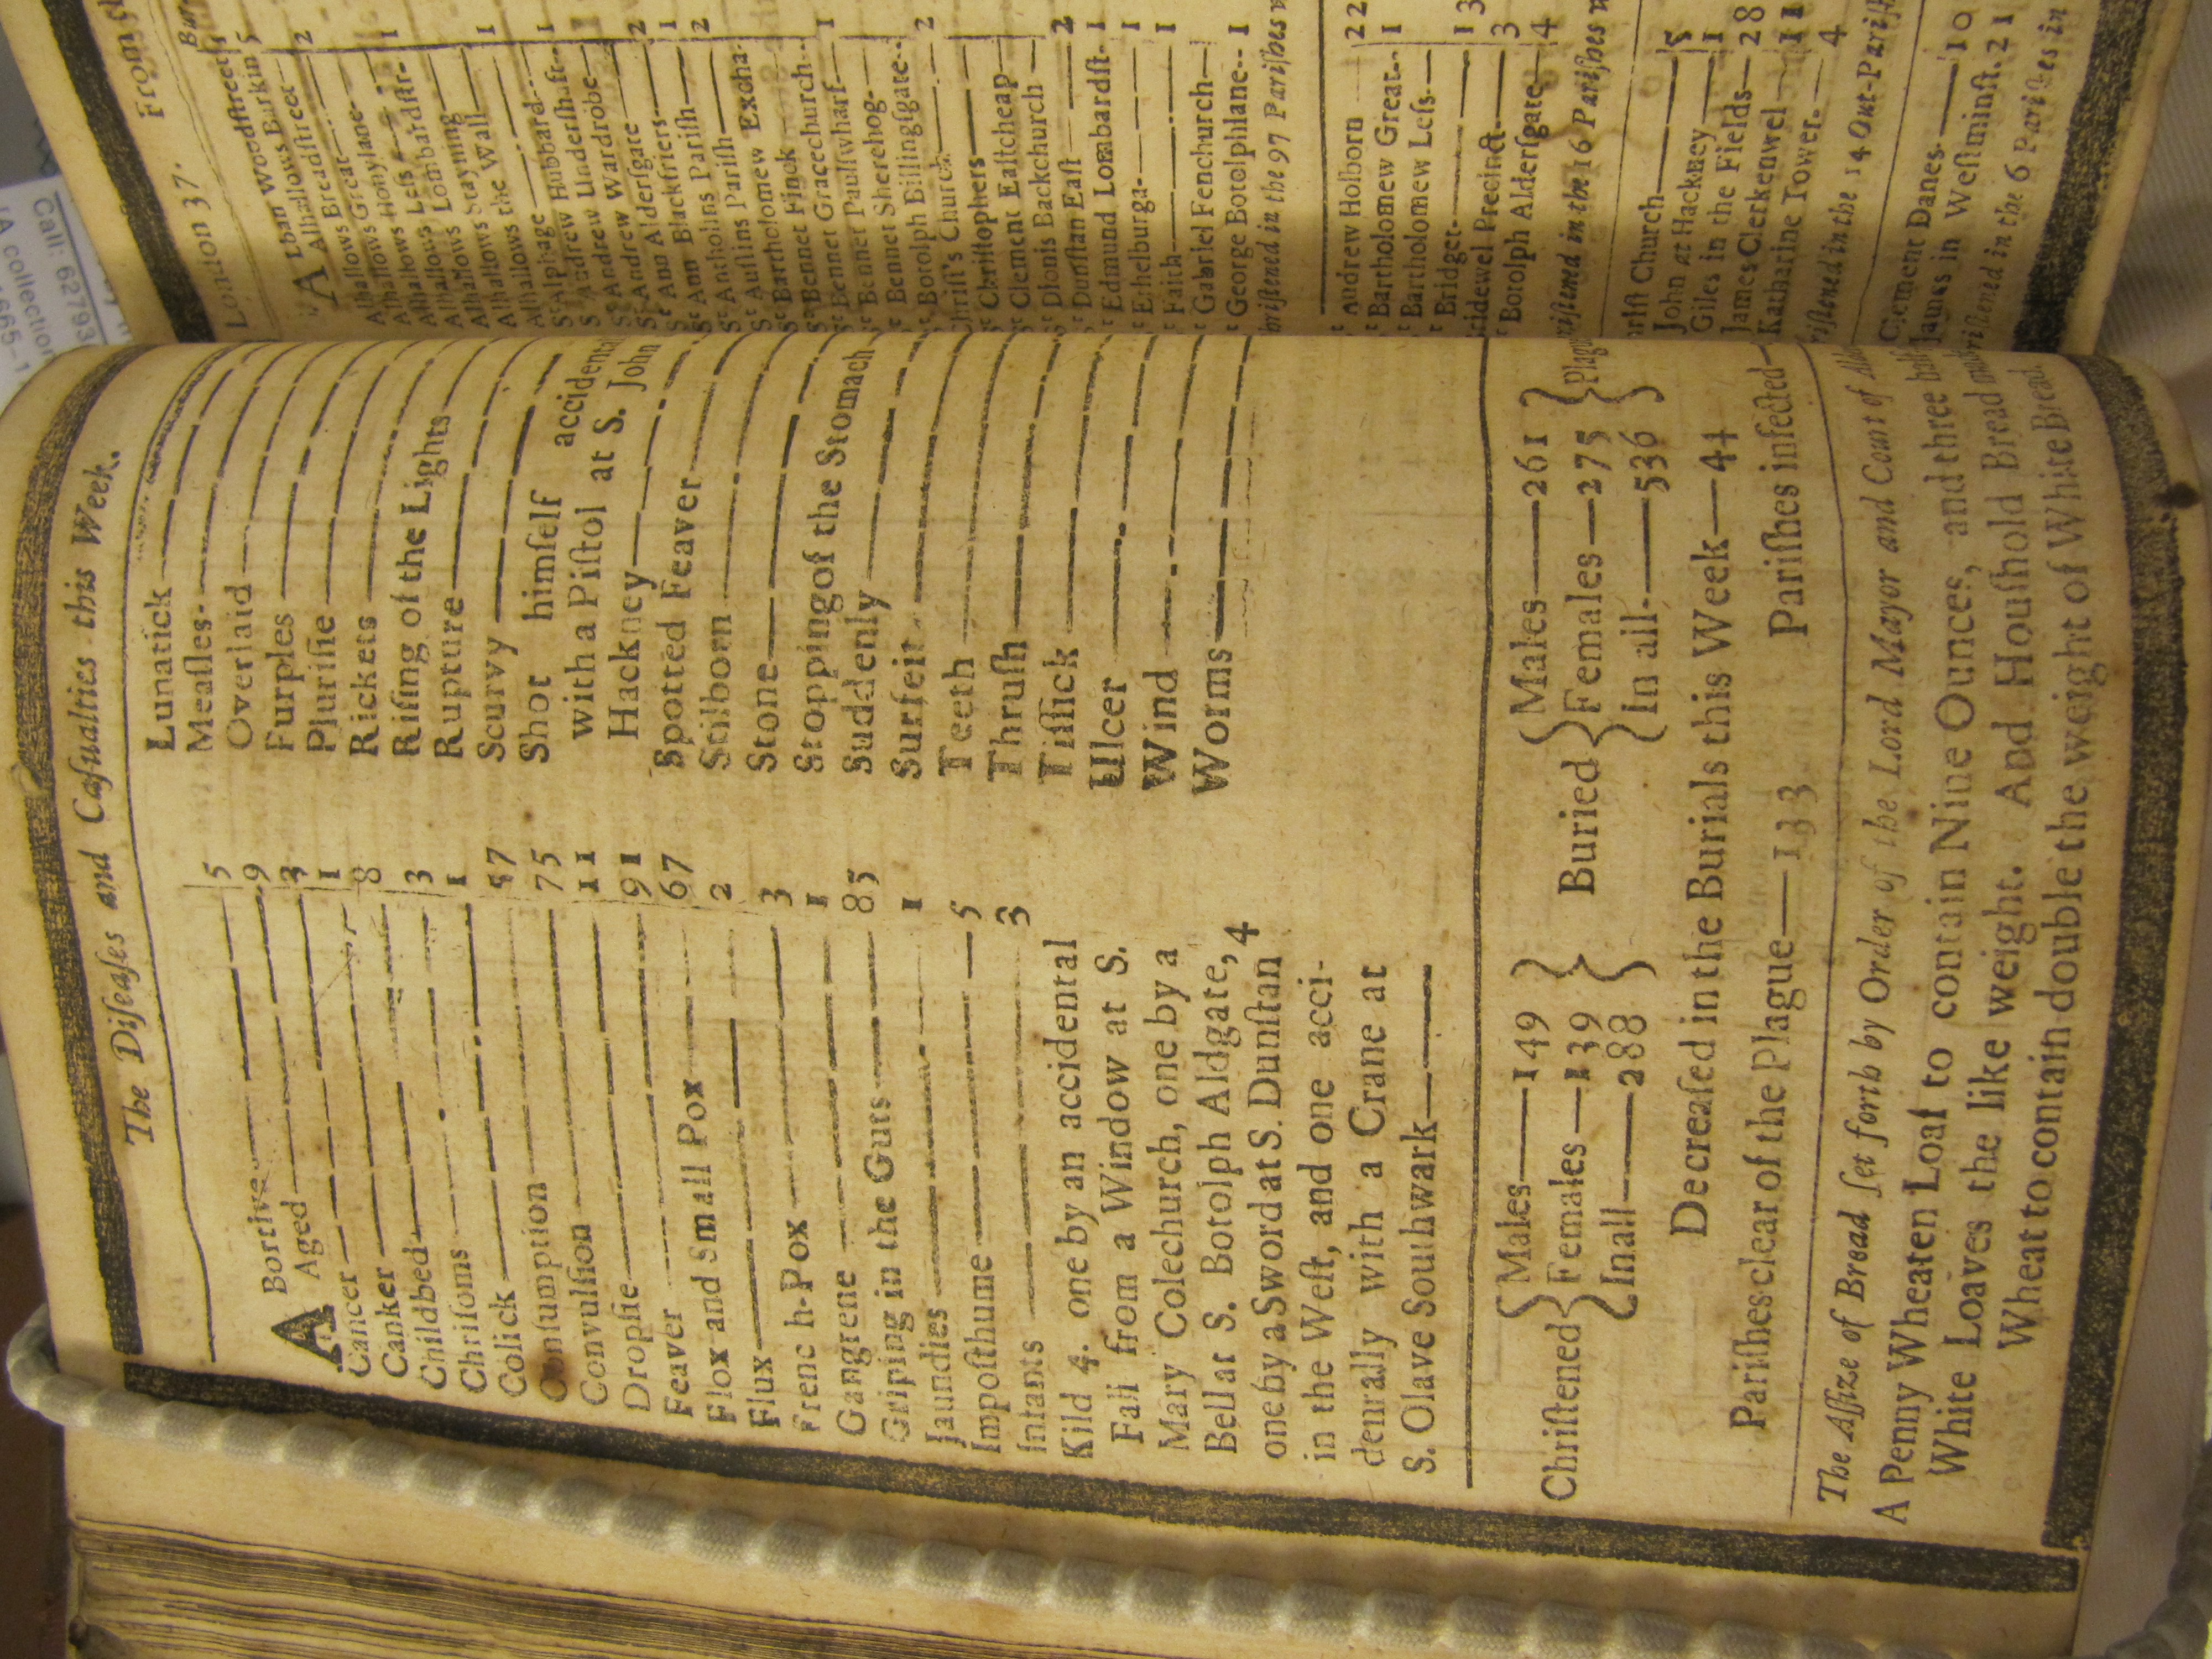 The Diſeaſes and Caſualties this Week.
A Bortive 5
Aged 9
Cancer 3
Canker 1
Childbed 8
Chriſoms 3
Colick 1
Conſumption 57
Convulſion 75
Dropſie 11
Feaver 91
Flox and Small Pox 67
Flux 2
French-Pox 3
Gangrene 1
Griping in the Guts 85
Jaundies 1
Impoſthume 5
Infants 3
Kild 4. one by an accidental
Fall from a Window at S.
Mary Colechurch, one by a
Bell at S. Botolph Aldgate, 4
one by a Sword at S. Dunſtan
in the Weſt, and one acci-
dentally with a Crane at
S. Olave Southwark
Lunatick
Meaſles
Overlaid
Purples
Pluriſie
Rickets
Riſing of the Lights
Rupture
Scurvy
Shot himſelf accidental
with a Piſtol at S. John
Hackney
Spotted Feaver
Stilborn
Stone
Stopping of the Stomach
Suddenly
Surfeit
Teeth
Thruſh
Tiſſick
Ulcer
Wind
Worms
Chriſtened { Males 149 Females 139 In all 288 }
Buried { Males 261 Females 275 In all 536 } Plague
Decreaſed in the Burials this Week 44
Pariſhes clear of the Plague 133 Pariſhes infected
The Aſſize of Bread ſet forth by Order of the Lord Mayor and Court of
A Penny Wheaten Loaf to contain Nine Ounces, and three half
White Loaves the like weight. And Houſhold Bread
Wheat to contain double the weight of White Bread.
London 37. From
ALban Woodſtreet
Alhallows Barkin 5
Alhallows Breadſtreet 2
Alhallows Great
Alhallows Honylane 1
Alhallows Leſs
Alhallows Lombardſtr. 1
Alhallows Stayning
Alhallows the Wall 1
St Alphage
St Andrew Hubbard 1
St Andrew Underſhaft
St Andrew Wardrobe 2
St Ann Alderſgate 1
St Ann Blackfriers 2
St Antholins Pariſh
St Auſtins Pariſh
St Bartholomew Excha.
St Bennet Finck
St Bennet Gracechurch 1
St Bennet Paulſwharf
St Bennet Sherehog
St Botolph Billingſgate 2
Chriſt's Church
St Chriſtophers
St Clement Eaſtcheap
St Dionis Backchurch
St Dunſtan Eaſt 2
St Edmund Lombardſt. 1
St Ethelburga 1
St Faith 1
St Gabriel Fenchurch
St George Botolphlane 1
in the 97 Pariſhes
St Andrew Holborn 22
St Bartholomew Great 1
St Bartholomew Leſs
St Bridget 13
Bridewel Precinct 3
St Botolph Alderſgate 4
in the 16 Pariſhes
Chriſt Church 5
John at Hackney 1
Giles in the Fields 28
James Clerkenwel 11
Katharine Tower 4
in the 14 Out-Pariſh
Clement Danes 10
James in Weſtminſt. 21
in the 6 Pariſhes in
Call: 62793
collection